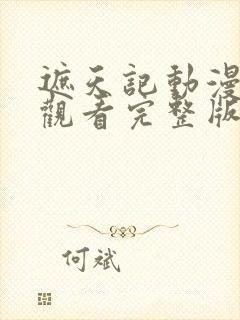 遮天記動漫
觀看完整版
何斌